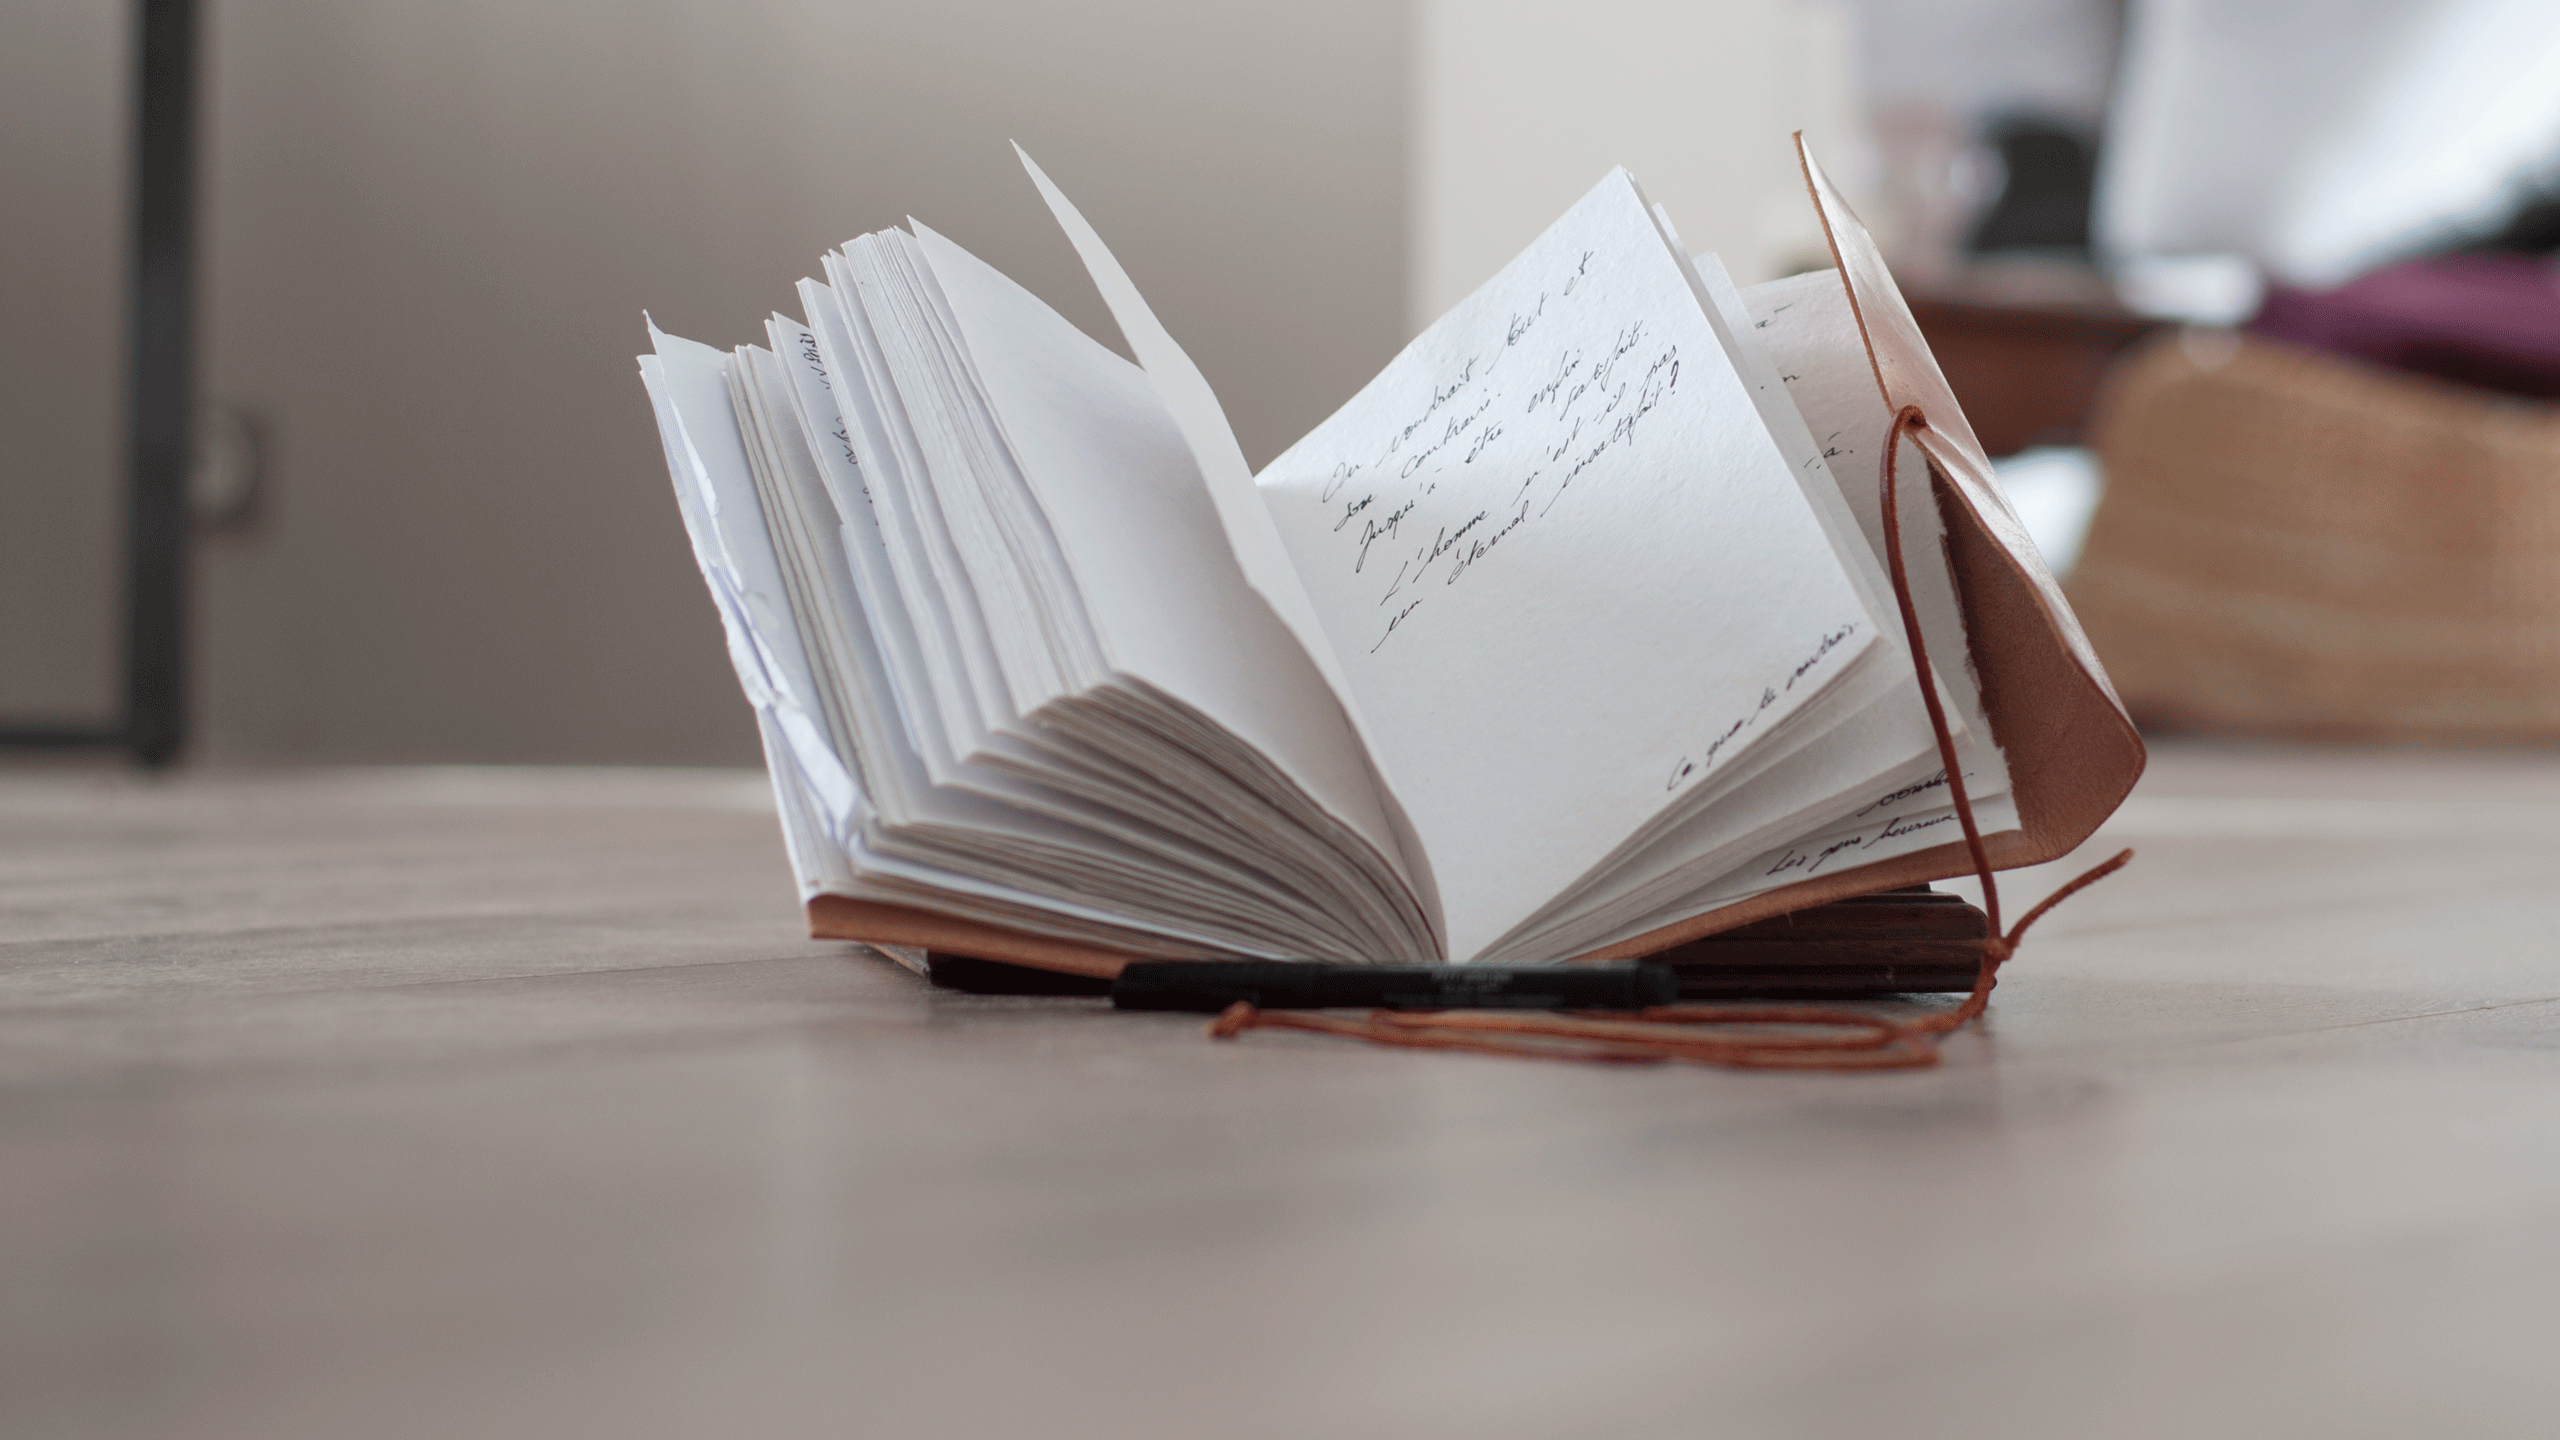 On voudrait tout et
son contraire.
Jusqu'à être enfin satisfait.
L'homme n'est-il pas
un éternel insatisfait?
Ce que tu voudrais.
Les gens heureux